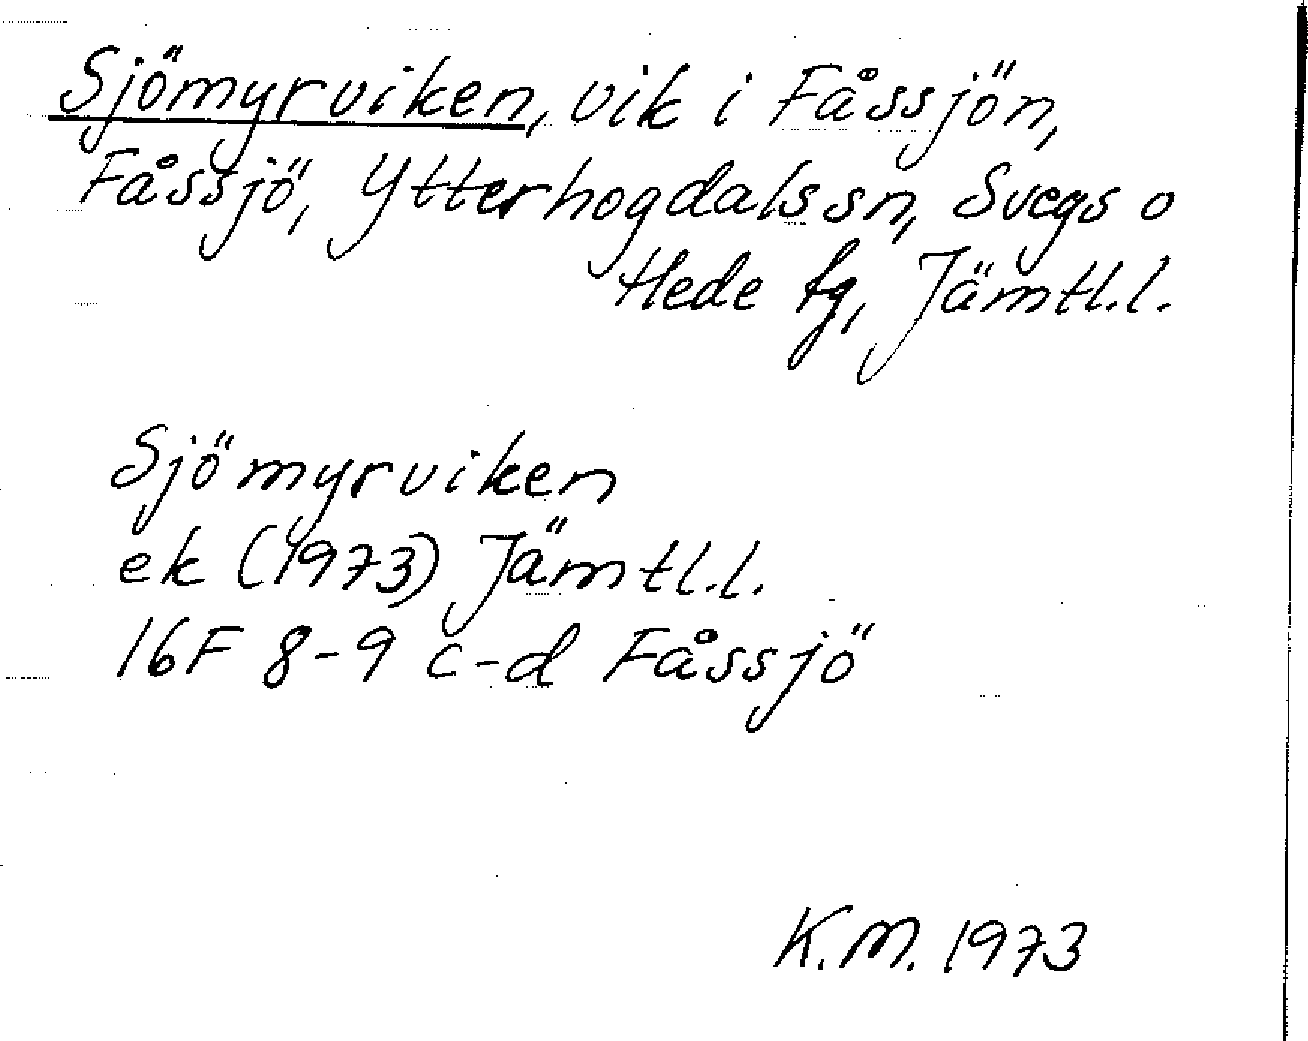 Sjömyrviken, vik i Fåssjön,
Fåssjö, Ytterhogdalssn, Svegs o
Hede tg, Jämtl.l.
Sjömyrviken
ek (1973) Jämtl.l.
16F 8-9 c-d Fåssjö
K.M. 1973